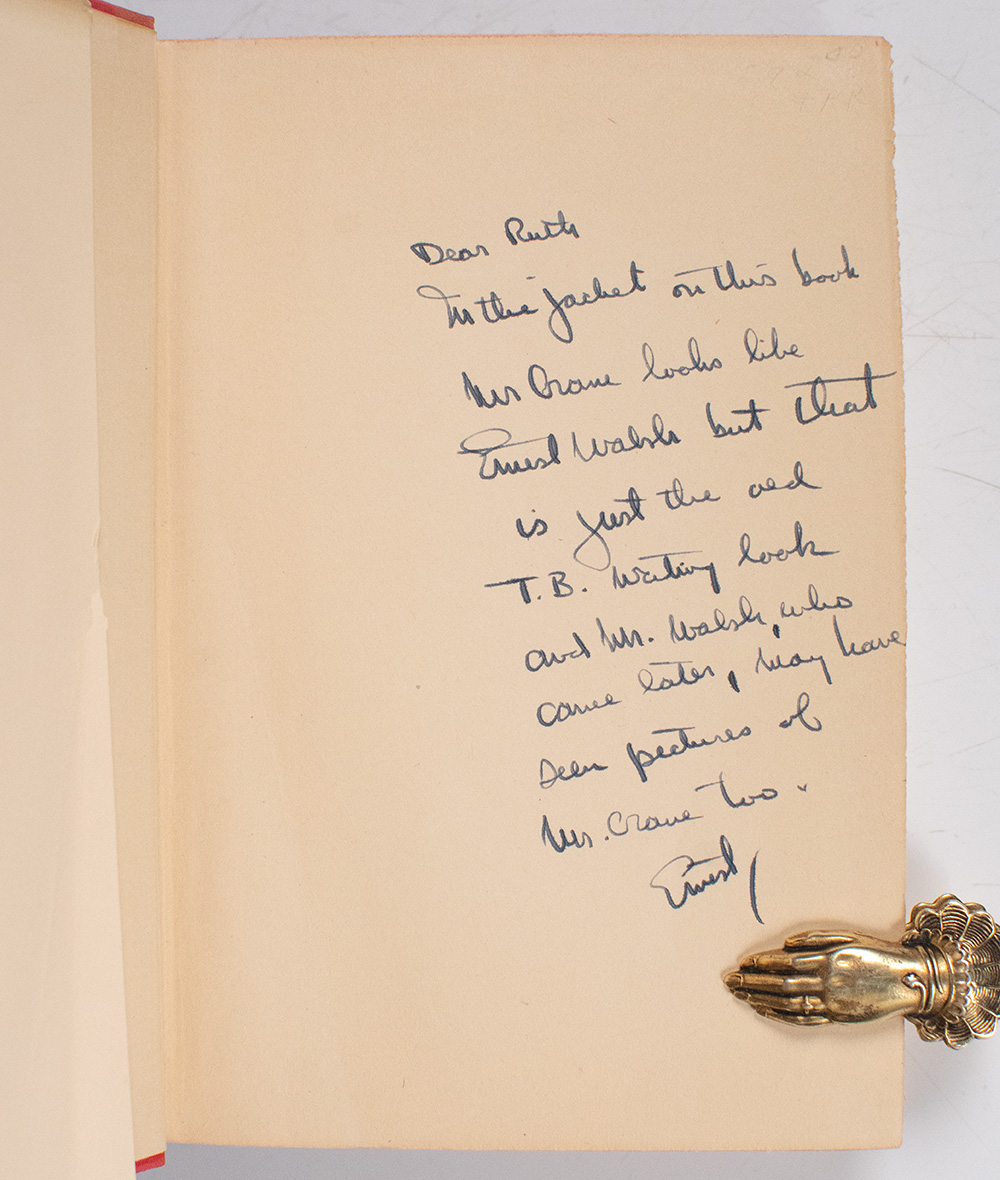 Dear Ruth
In the jacket on this book
Mr Crane looks like
Ernest Walsh but that
is just the old
T.B. Writing look
and Mr. Walsh, who
came later, may have
seen pictures of
Mr. Crane too.
Ernest